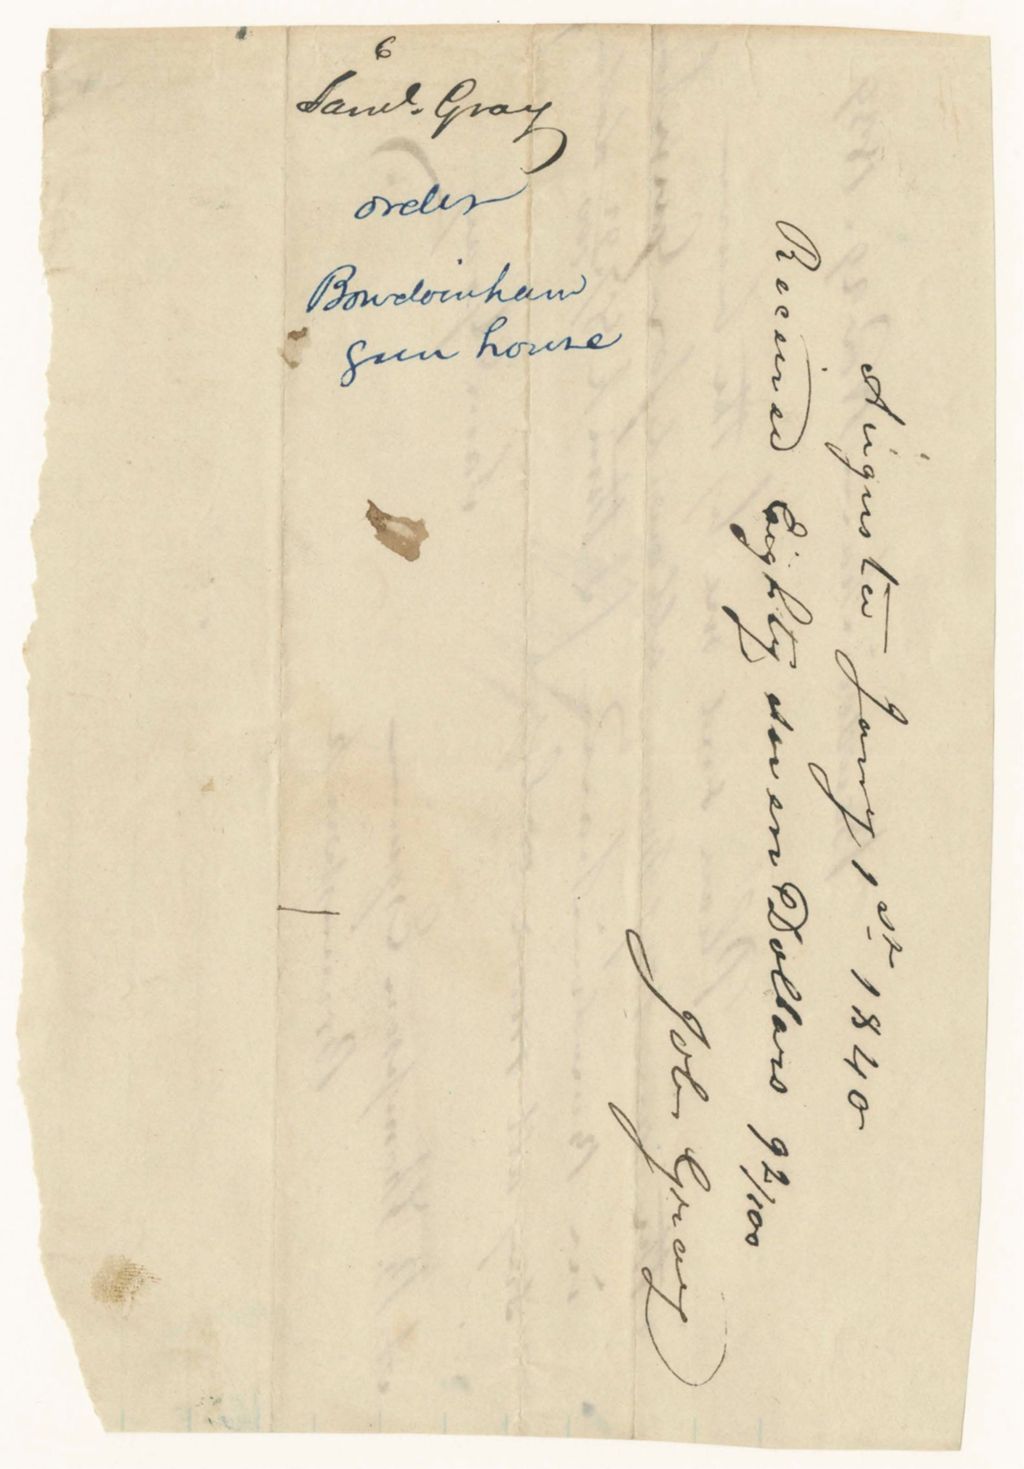 6
Saml. Gray
order
Bowdoinham
gun house
Augusta Jany 1st 1840
Received Eighty seven Dollars 92/100
John Gray